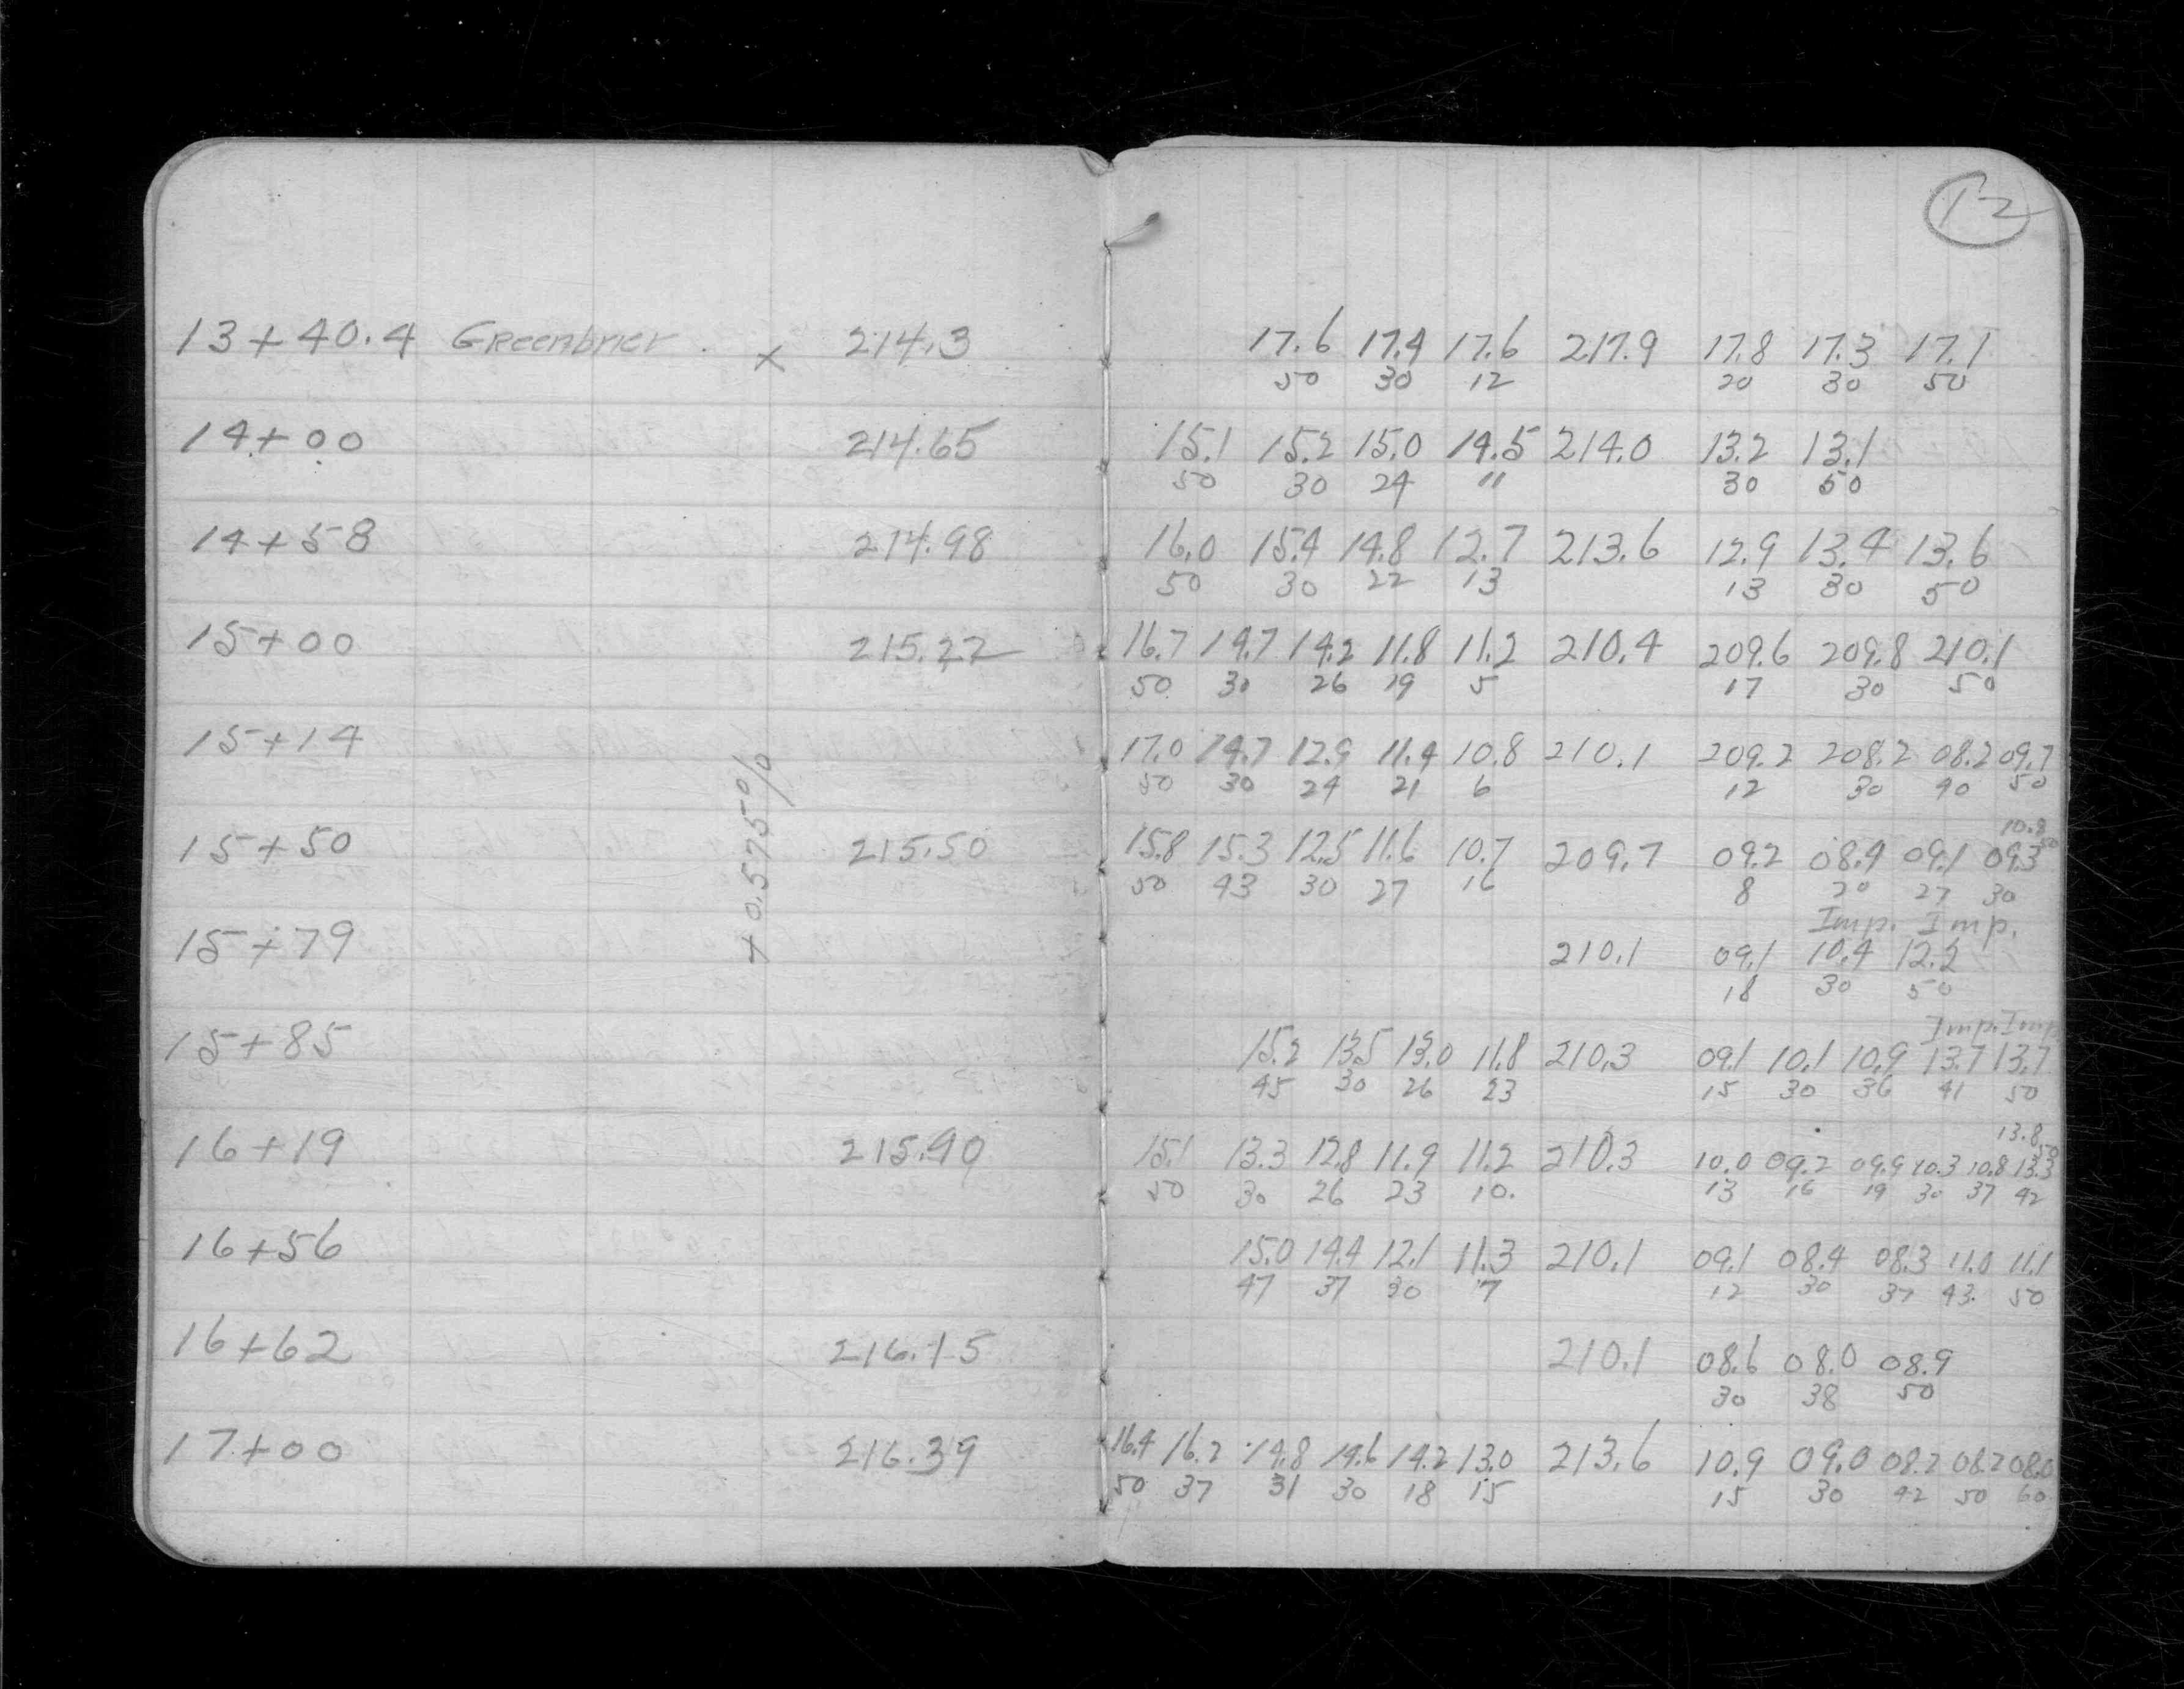 12
13+40.4 Greenbrier x 214.3 17.6 17.4 17.6 217.9 17.8 17.3 17.1
50 30 12 20 30 50
14+00 214.65 15.1 15.2 15.0 14.5 214.0 13.2 13.1
50 30 24 11 30 50
14+58 214.98 16.0 15.4 14.8 12.7 213.6 12.9 13.4 13.6
50 30 22 13 13 30 50
15+00 215.22 16.7 14.7 14.2 11.8 11.2 210.4 209.6 209.8 210.1
50 30 26 19 5 17 30 50
15+14 17.0 14.7 12.9 11.4 10.8 210.1 209.2 208.2 08.2 09.7
50 30 24 21 6 12 30 40 50
+0.575%
10.8
50
15+50 215.50 15.8 15.3 12.5 11.6 10.7 209.7 09.2 08.4 09.1 09.3
50 43 30 27 16 8 20 27 30
Imp. Imp.
15+79 210.1 09.1 10.4 12.2
18 30 50
Imp. Imp
15+85 15.2 13.5 13.0 11.8 210.3 09.1 10.1 10.9 13.7 13.7
45 30 26 23 15 30 36 41 50
13.8
50
16+19 215.90 15.1 13.3 12.8 11.9 11.2 210.3 10.0 09.2 09.9 10.3 10.8 13.3
50 30 26 23 10. 13 16 19 30 37 42
16+56 15.0 14.4 12.1 11.3 210.1 09.1 08.4 08.3 11.0 11.1
47 37 30 7 12 30 37 43. 50
16+62 216.15 210.1 08.6 08.0 08.9
30 38 50
17+00 216.39 16.4 16.2 14.8 14.6 14.2 13.0 213.6 10.9 09.0 08.2 08.2 08.0
50 37 31 30 18 15 15 30 42 50 60